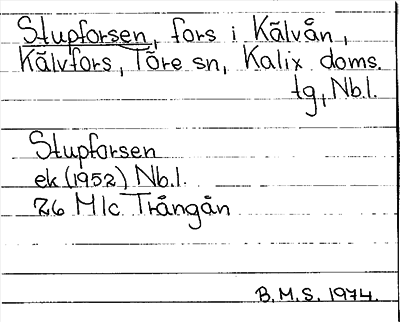 Stupforsen, fors i Kälvån,
Kälvfors, Töre sn, Kalix doms.
tg, Nb.l.
Stupforsen
ek (1952) Nb.l.
26 Mlc Trångån
B.M.S. 1974.